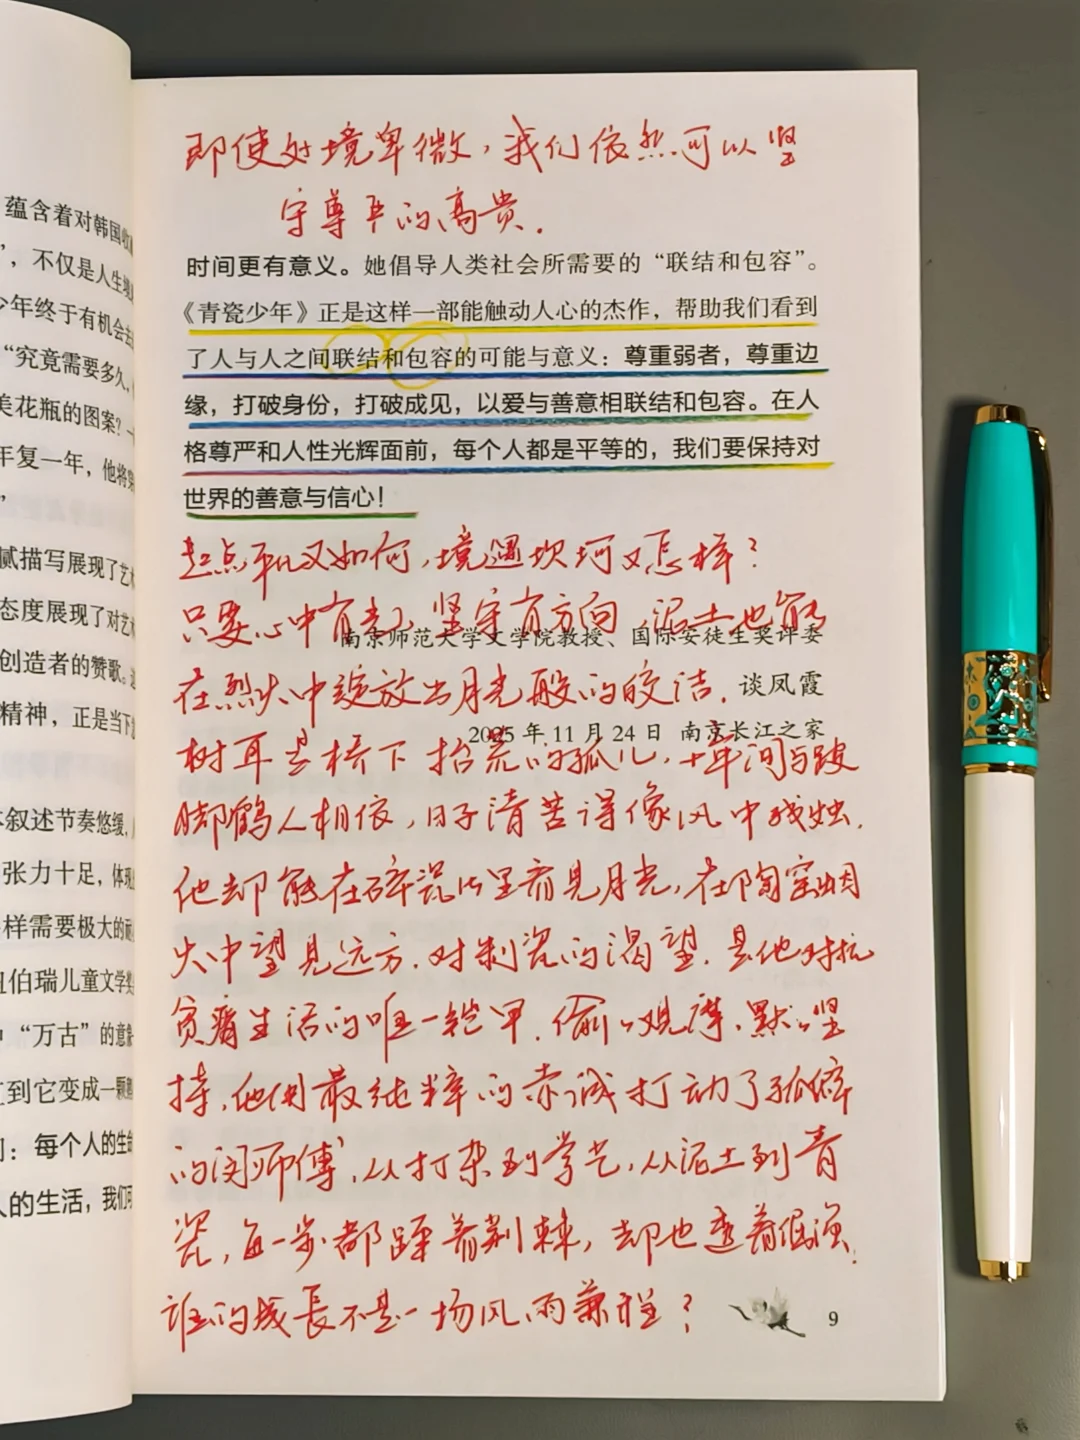 蕴含着对韩国
”，不仅是人生境
少年终于有机会去
“究竟需要多久，
美花瓶的图案？
年复一年，他将
”
腻描写展现了艺
态度展现了对艺
创造者的赞歌。
精神，正是当下
叙述节奏悠缓，
张力十足，体现
样需要极大的耐
纽伯瑞儿童文学奖
中“万古”的意象
直到它变成一颗
们：每个人的生命
人的生活，我们可
即使处境卑微，我们依然可以坚
守尊严的高贵.
时间更有意义。她倡导人类社会所需要的“联结和包容”。
《青瓷少年》正是这样一部能触动人心的杰作，帮助我们看到
了人与人之间联结和包容的可能与意义：尊重弱者，尊重边
缘，打破身份，打破成见，以爱与善意相联结和包容。在人
格尊严和人性光辉面前，每个人都是平等的，我们要保持对
世界的善意与信心！
起点平凡又如何，境遇坎坷又怎样？
只要心中有光，坚守有方向，泥土也能
南京师范大学文学院教授、国际安徒生奖评委
在烈火中绽放出月光般的皎洁.
谈凤霞
2025年11月24日 南京长江之家
树耳是桥下拾荒的孤儿，十年间与跛
脚鹤人相依，日子清苦得像风中残烛.
他却能在碎瓷片里看见月光，在陶窑烟
火中望见远方.对制瓷的渴望.是他对抗
贫瘠生活的唯一铠甲.偷偷观摩、默默坚
持，他用最纯粹的赤诚打动了孤僻
的闵师傅，从打杂到学艺，从泥土到青
瓷，每一步都踩着荆棘，却也透着倔强.
谁的成長不是一场风雨兼程？
9